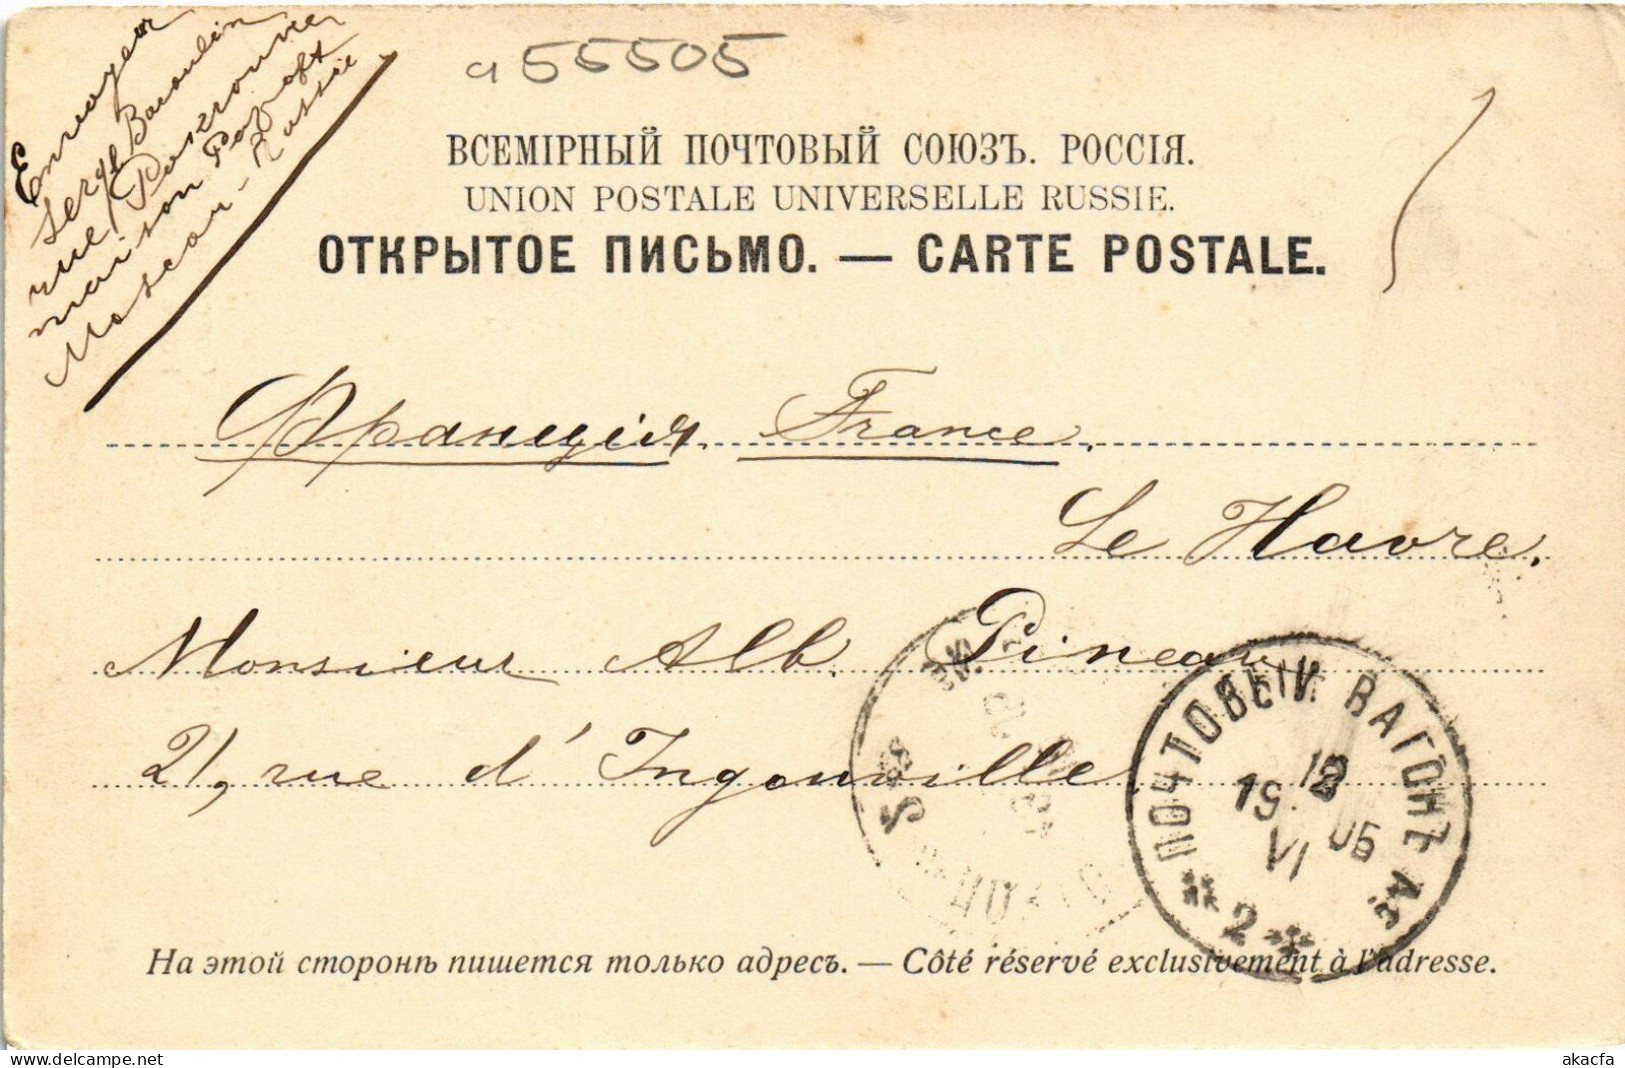 Envoyer
Serge Baroulin
rue Pokrowka
maison Popoff
Moscou - Russie
a55505
ВСЕМІРНЫЙ ПОЧТОВЫЙ СОЮЗЪ. РОССІЯ.
UNION POSTALE UNIVERSELLE RUSSIE.
ОТКРЫТОЕ ПИСЬМО. — CARTE POSTALE.
Франція. France.
Le Havre.
Monsieur Alb. Pineau
21, rue d'Ingouville.
ПОЧТОВЫЙ ВАГОНЪ №
19
VI 05
* 2 *
На этой сторонѣ пишется только адресъ. — Côté réservé exclusivement à l'adresse.
www.delcampe.net
akacfa